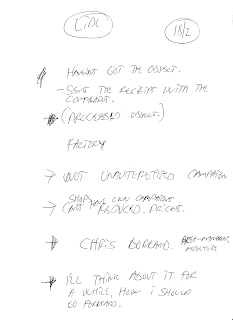 LIDL
18/2
HAVENT GOT THE OBJECT.
- SENT THE RECEIPT WITH THE
COMPLAINT.
(PROCESSED OBJECT.)
FACTORY
→ NOT UNAUTHORISED CAMPAIGN
SHOPS OWN CAMPAIGN
→ (NOT REDUCED PRICES.
→ CHRIS
I'LL THINK ABOUT IT FOR
A WHILE, HOW I SHOULD
GO FORWARD.